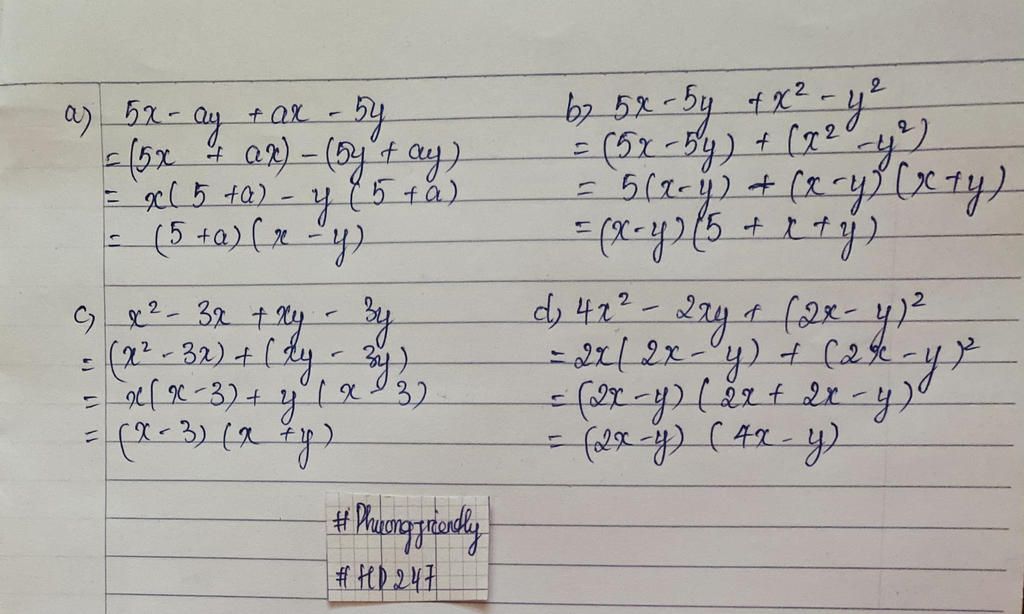 a) 5x - ay + ax - 5y
= (5x + ax) - (5y + ay)
= x(5 + a) - y(5 + a)
= (5 + a)(x - y)
b) 5x - 5y + x² - y²
= (5x - 5y) + (x² - y²)
= 5(x - y) + (x - y)(x + y)
= (x - y)(5 + x + y)
c) x² - 3x + xy - 3y
= (x² - 3x) + (xy - 3y)
= x(x - 3) + y(x - 3)
= (x - 3)(x + y)
d) 4x² - 2xy + (2x - y)²
= 2x(2x - y) + (2x - y)²
= (2x - y)(2x + 2x - y)
= (2x - y)(4x - y)
#Phuongfriendly
#HD247